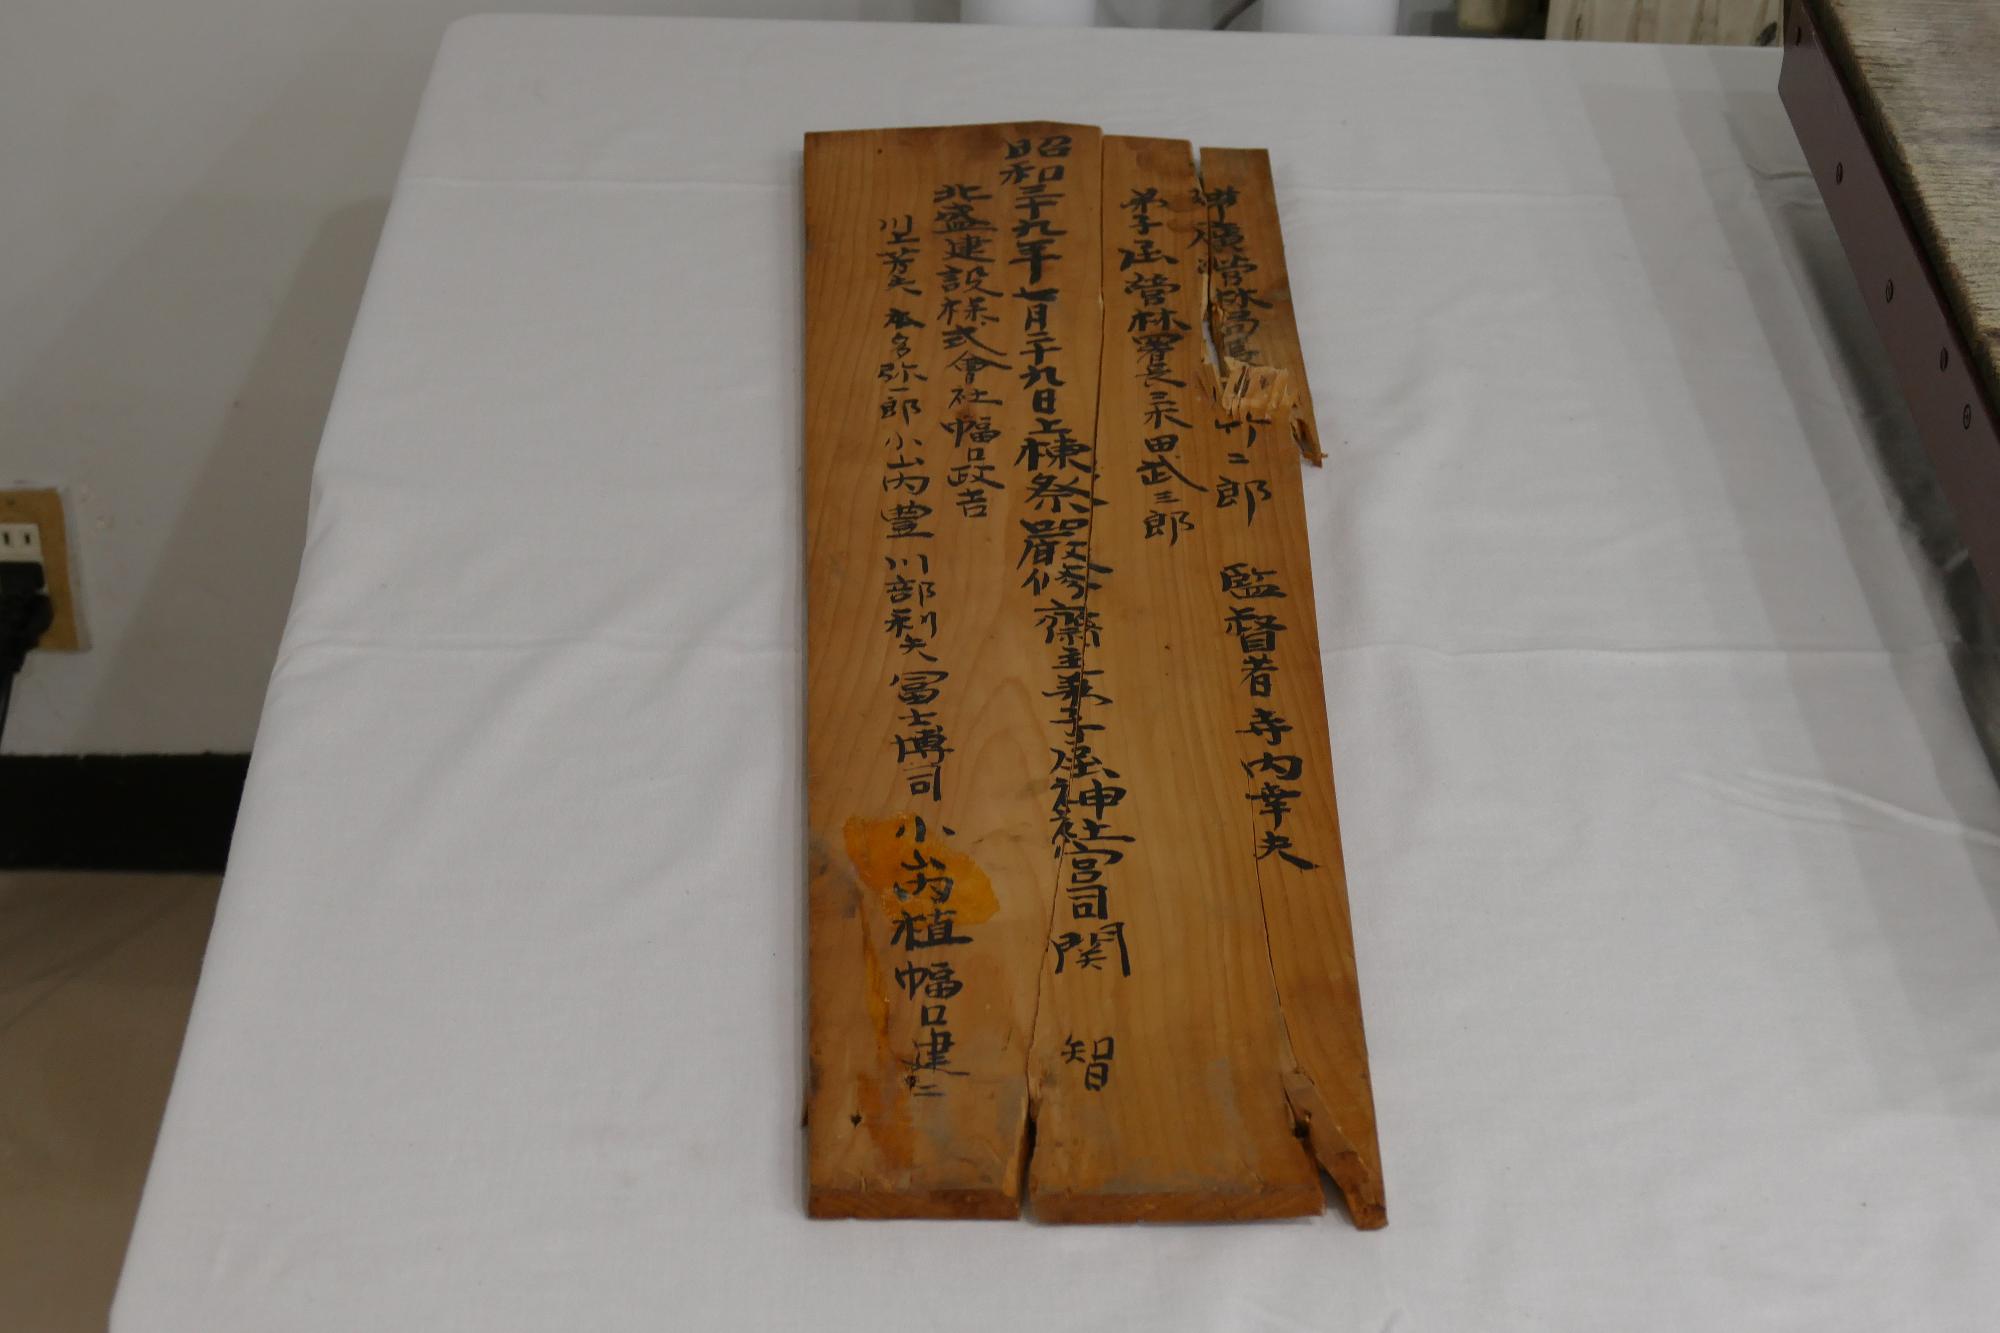 帯廣営林局長 竹二郎 監督者寺内幸夫
弟子屈営林署長 三木田武三郎
昭和三十九年七月二十九日上棟祭嚴修 齋主弟子屈神社宮司関 智
北盛建設様式會社 幅口政吉
川上芳夫 本多弥一郎 小山内豊 川部利夫 冨士博司 小山内植 幅口建仁